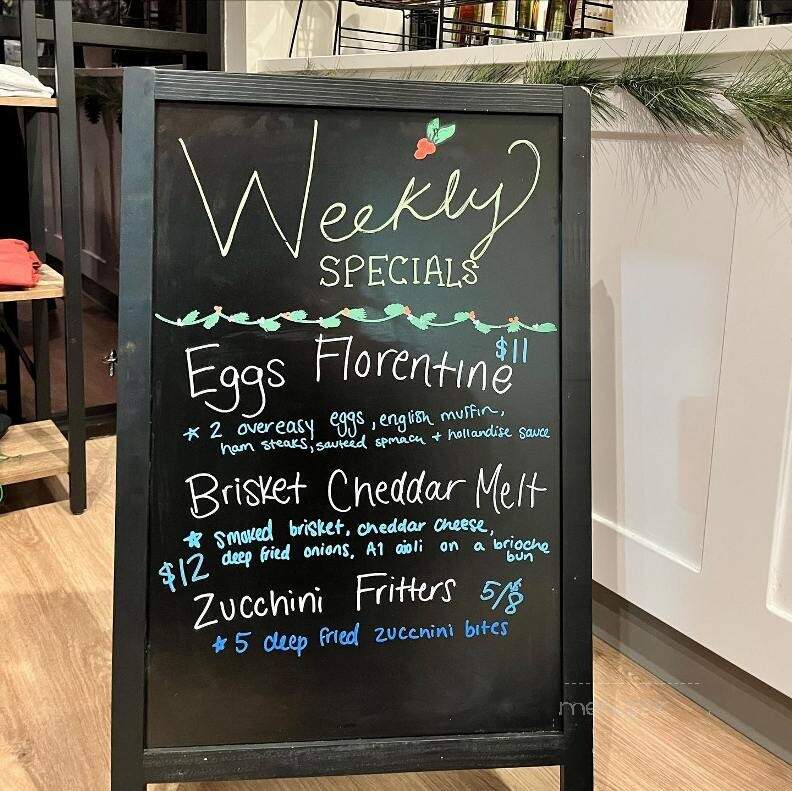 Weekly
SPECIALS
Eggs Florentine $11
* 2 overeasy eggs, english muffin,
ham steaks, sauteed spinach + hollandise sauce
Brisket Cheddar Melt
* Smoked brisket, cheddar cheese,
$12 deep fried onions, A1 aioli on a brioche
bun
Zucchini Fritters 5/$8
* 5 deep fried zucchini bites